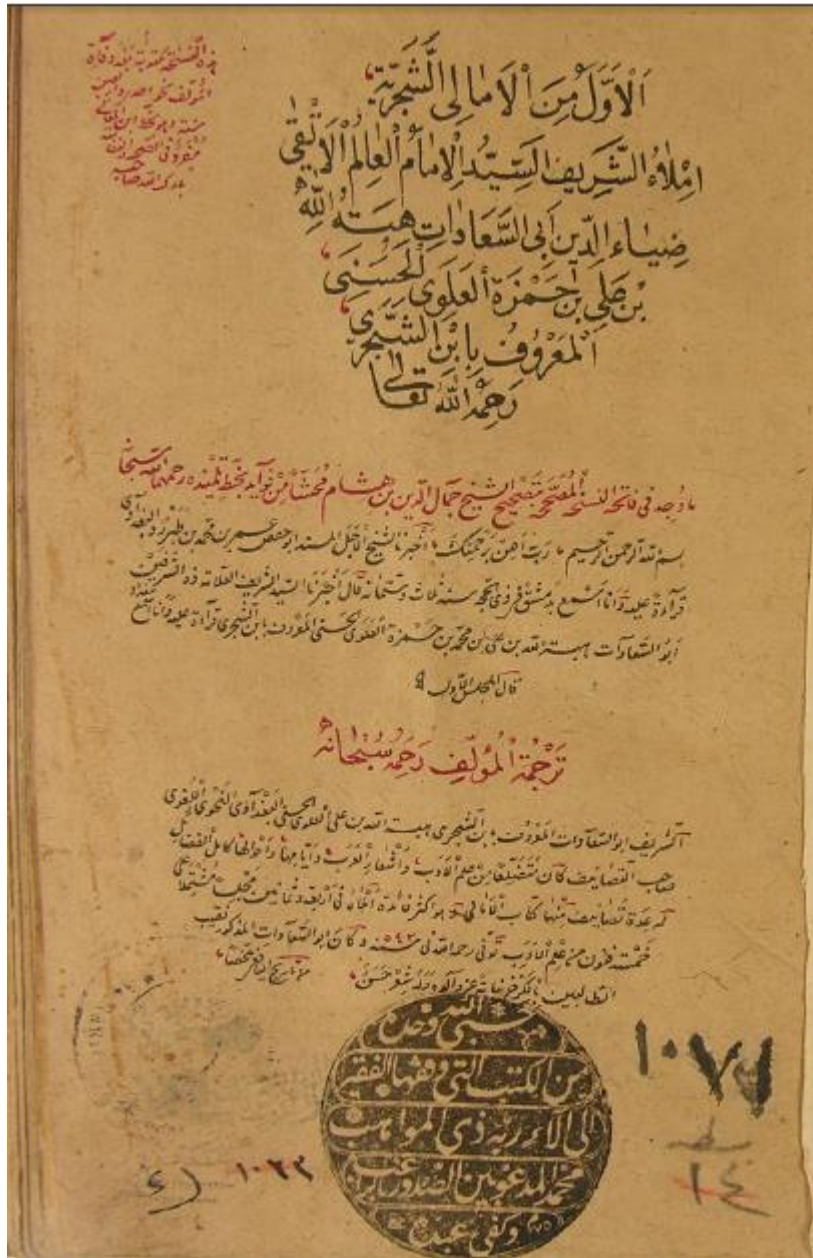 هذه النسخة مكتوبة بعد وفاة
المؤلف
اَلْاَوَّلُ مِنَ الْاَمَالِى الشَّجَرِيَّةِ
اِمْلَاءُ الشَّرِيفِ السَّيِّدِ الْاِمَامِ الْعَالِمِ الْاَتْقٰى
ضِيَاءِ الدِّينِ اَبِى السَّعَادَاتِ هِبَةِ اللّٰهِ
بْنِ عَلِى بْنِ حَمْزَةَ الْعَلَوِى الْحَسَنِى
اَلْمَعْرُوفِ بِابْنِ الشَّجَرِى
رَحِمَهُ اللّٰهُ تَعَالٰى
ما وجد فى فاتحة النسخة المصححة بتصحيح الشيخ جمال الدين بن هشام محشاة من فوائد بخط تلميذه رحمهما الله سبحانه
بسم الله الرحمن الرحيم رب اعن برحمتك اخبرنا الشيخ الاجل المسند ابو حفص عمر بن محمد بن طبرزد البغدادى
قراءة عليه وانا اسمع بدمشق فى ذى الحجة سنة ثلاث وستمائة قال اخبرنا السيد الشريف العلامة ذو الشرفين
ابو السعادات هبة الله بن على بن محمد بن حمزة العلوى الحسنى المعروف بابن الشجرى قراءة عليه وانا اسمع ببغداد
قال المجلس الاول
تَرْجَمَةُ الْمُؤَلِّفِ رَحِمَهُ سُبْحَانَهُ
الشريف ابو السعادات المعروف بابن الشجرى هبة الله بن على العلوى الحسنى البغدادى النحوى اللغوى
صاحب التصانيف كان متضلعا من علم الادب واشعار العرب وايامها واحوالها كامل الفضائل
له عدة تصانيف منها كتاب الامالى وهو اكثرها فائدة املاه فى اربعة وثمانين مجلسا مشتملا على
خمسة فنون من علم الادب توفى رحمه الله فى سنة ٥٤٢ وكان ابو السعادات المذكور نقيب
الطالبيين بالكرخ نيابة عن والده وله شعر حسن
من تاريخ اليافعى ملخصا
حسبى الله وحده
من الكتب التى وقفها الفقير
الى آلاء ربه ذى المواهب
محمد المدعو بين الصدور
وكفى عبده
١٠٧١
١٤
١٠٢٣